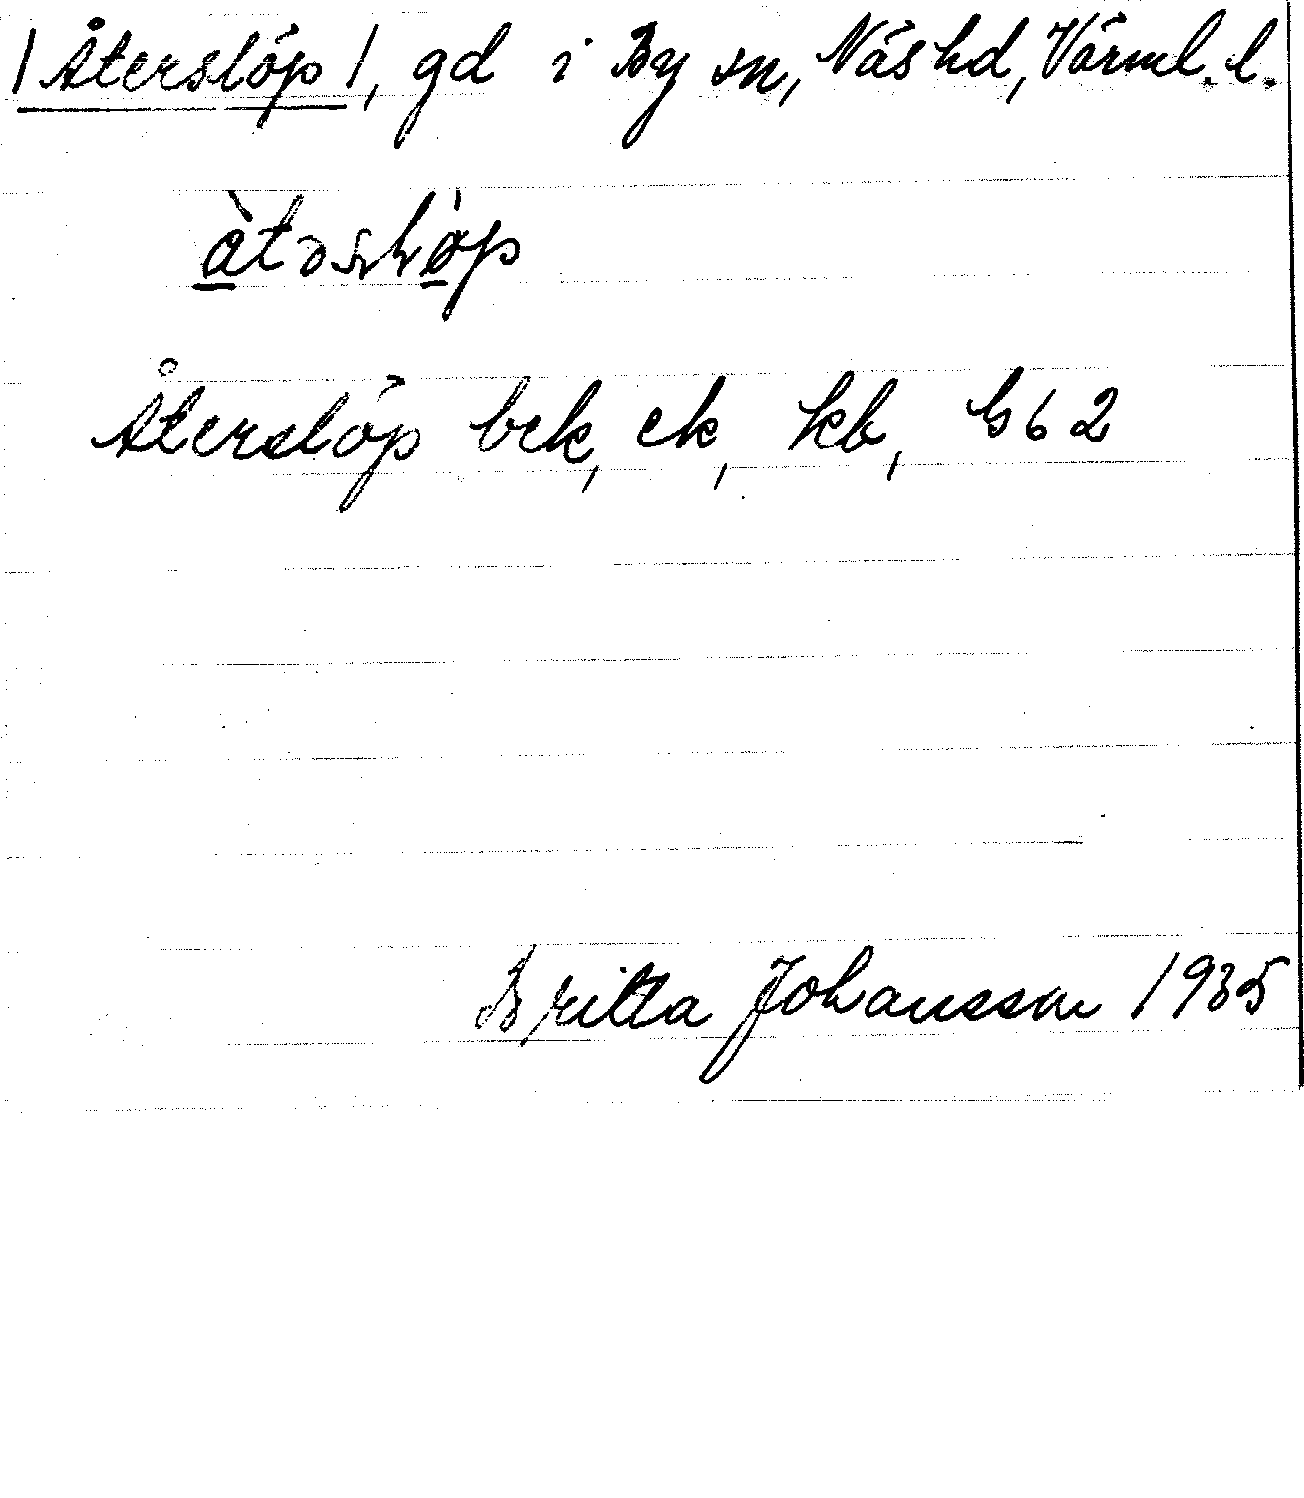 /Återslöp/, gd i By sn, Näs hd, Värml. l.
Återslöp bek, ek, kb, G 6 2
Britta Johansson 1935